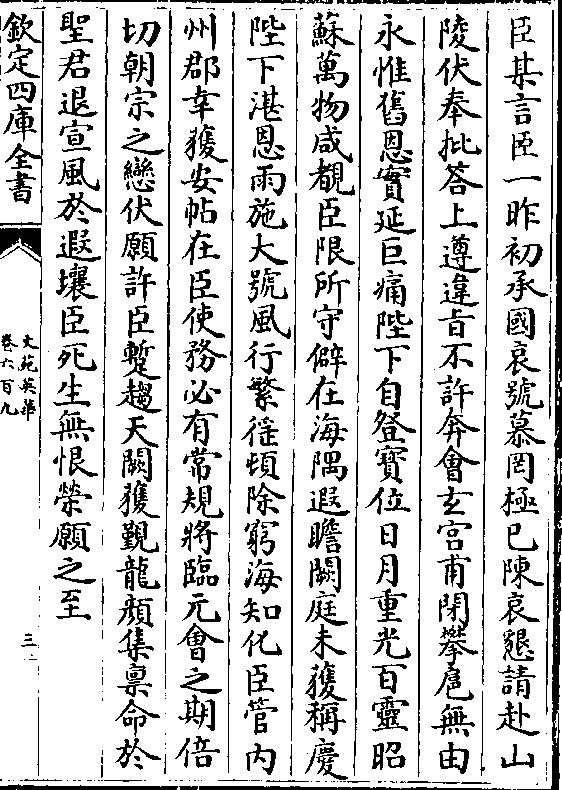 臣某言臣一昨初承國哀號慕罔極已陳哀懇請赴山
陵伏奉批答上遵違旨不許奔會玄宫甫閉攀扈無由
永惟舊恩實延巨痛陛下自登寶位日月重光百靈昭
蘇萬物咸覩臣限所守僻在海隅遐瞻闕庭未獲稱慶
陛下湛恩雨施大號風行繁徭頓除窮海知化臣管内
州郡幸獲安帖在臣使務必有常規將臨元會之期倍
切朝宗之戀伏願許臣蹔趨天闕獲覲龍顔集稟命於
聖君退宣風於遐壤臣死生無恨榮願之至
欽定四庫全書
文苑英華
卷六百九
三